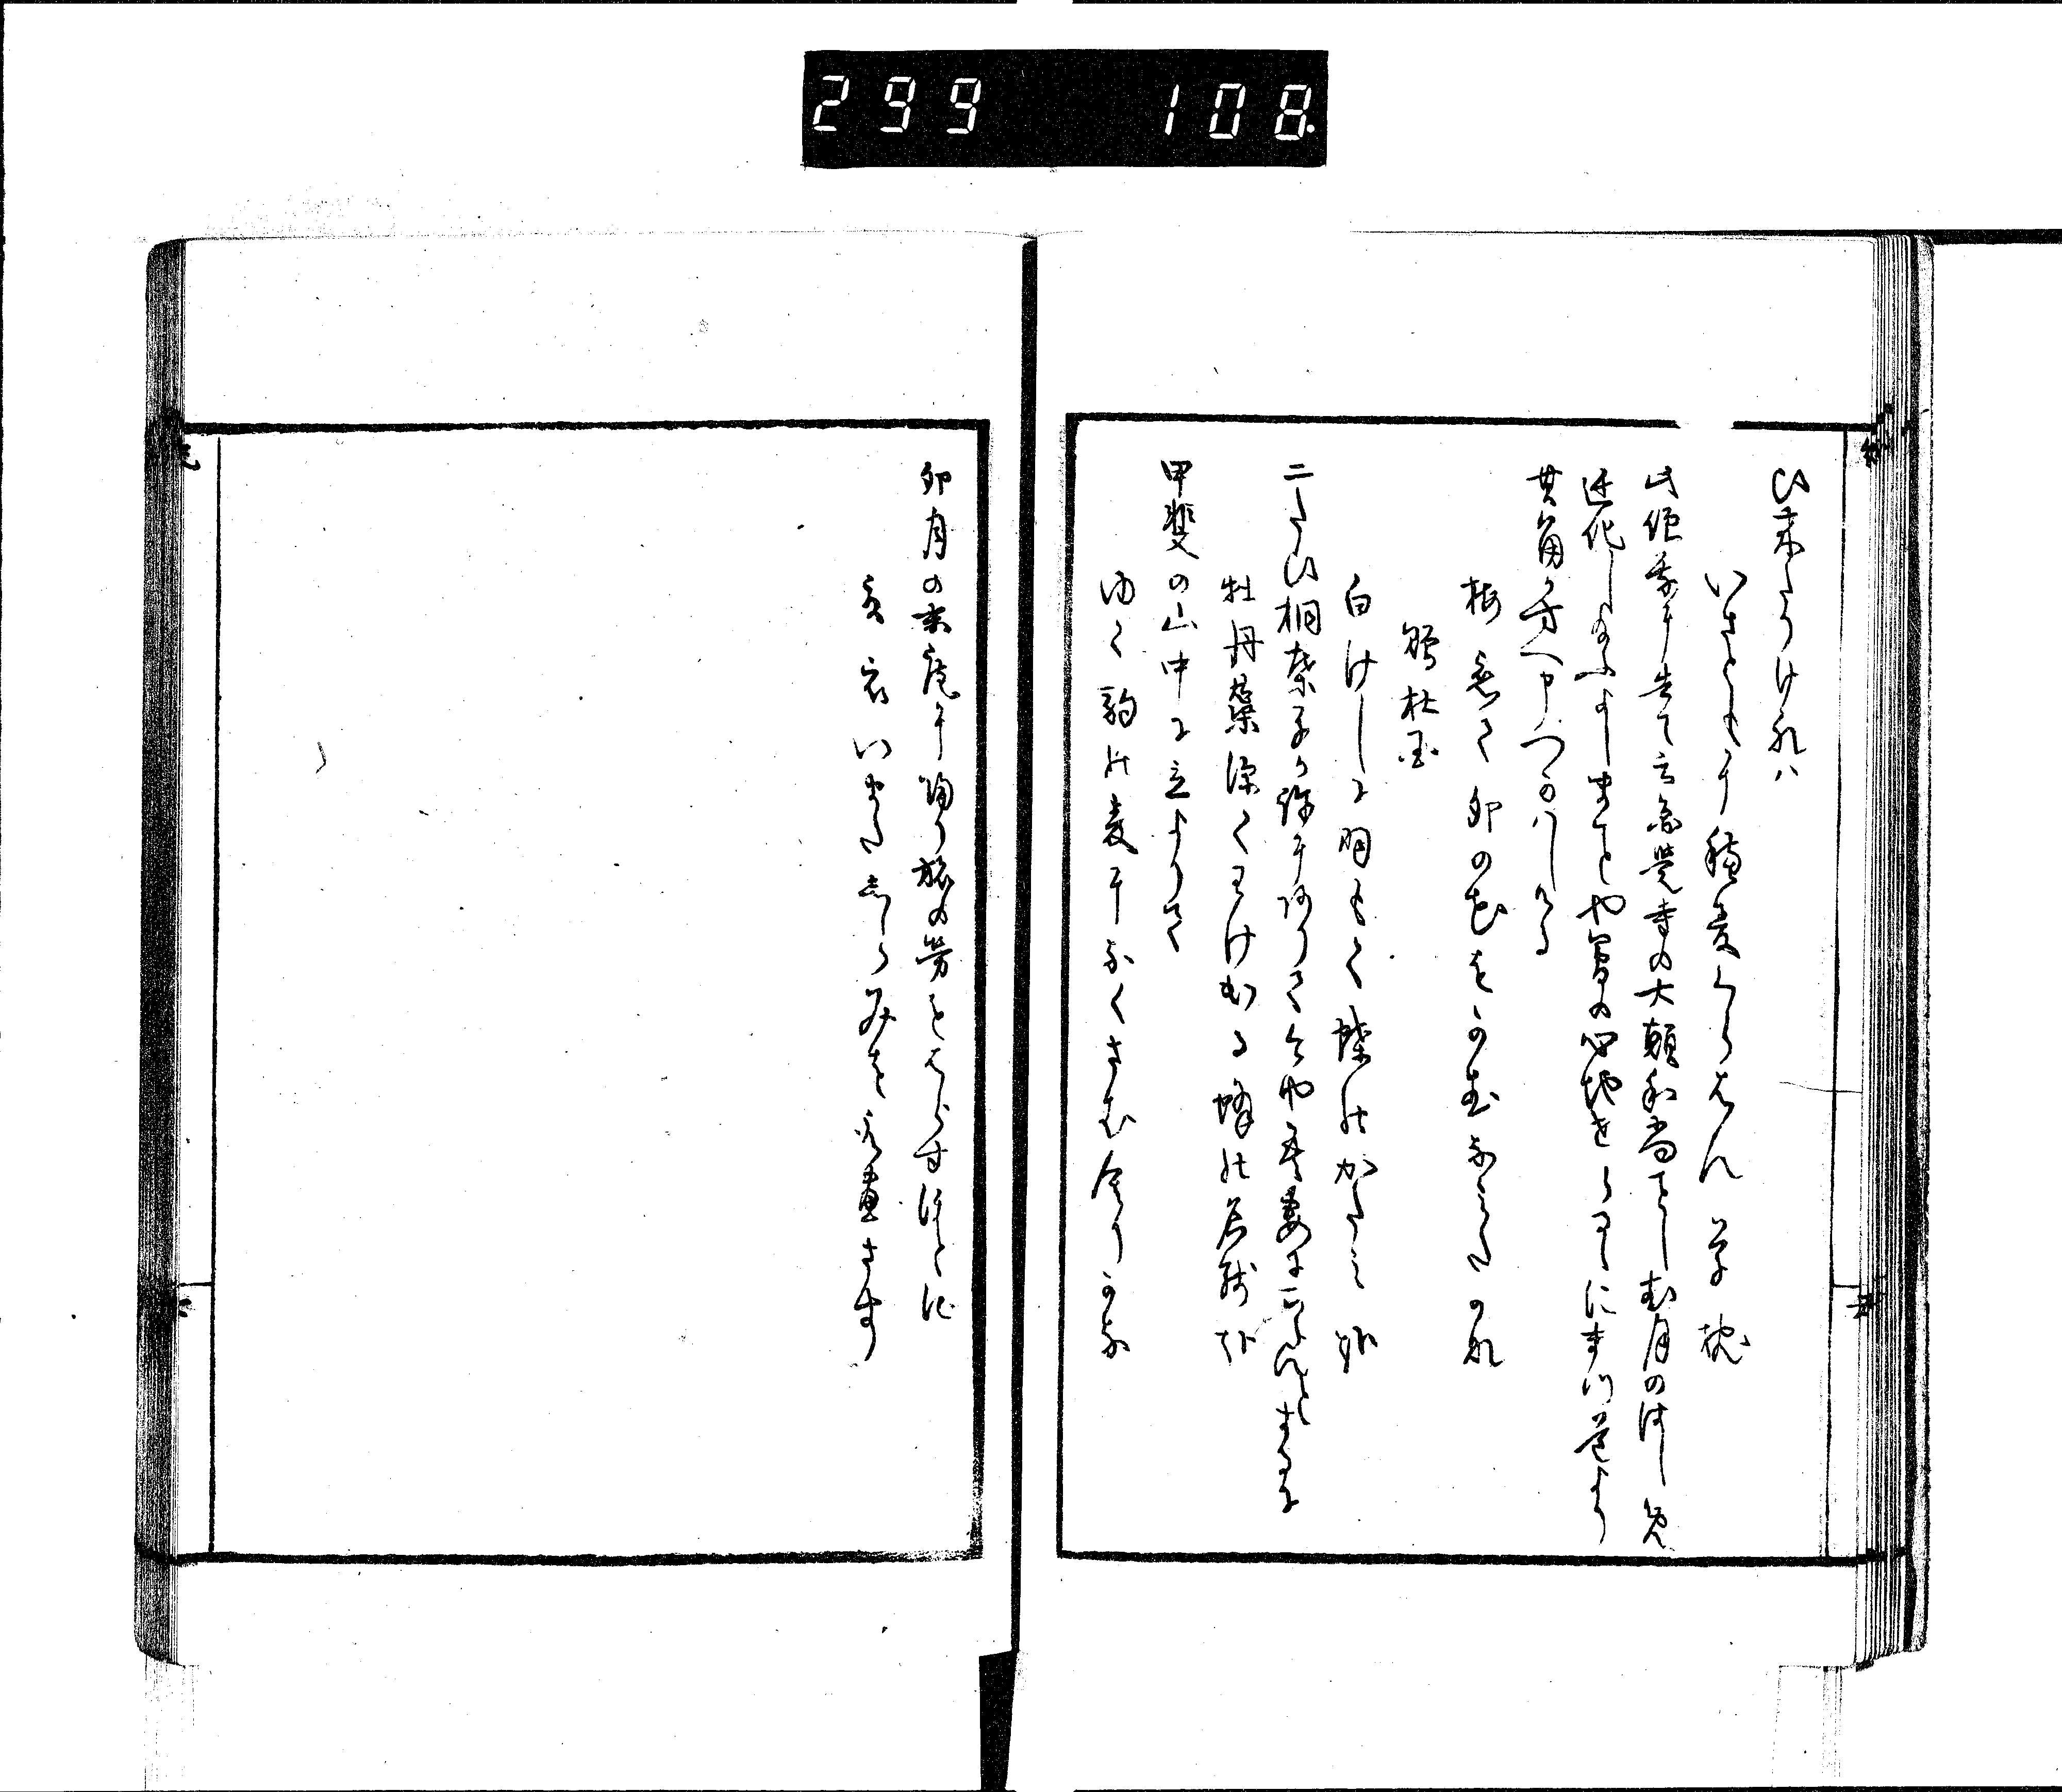 299 108
ひ来りけれハ
いさともに穂麦くらはん草枕
此僧我に告て云円覚寺の大顛和尚ことしむ月のはしめ
迁化し給ふよしまことや夢の心地せらるゝにまつ道より
其角か方へ申つかハしける
梅恋て卯の花をかむなみたかな
贈杜国
白けしに羽もく蝶のかたみ哉
二たひ桐葉子か許に有て今や東に下らんとするに
牡丹蘂深くわけ出る蜂の名残哉
甲斐の山中に立よりて
ゆく駒の麦になくさむやとり哉
卯月の末庵に帰り旅の労をはらすほとに
夏衣いまたしらみを取尽さす